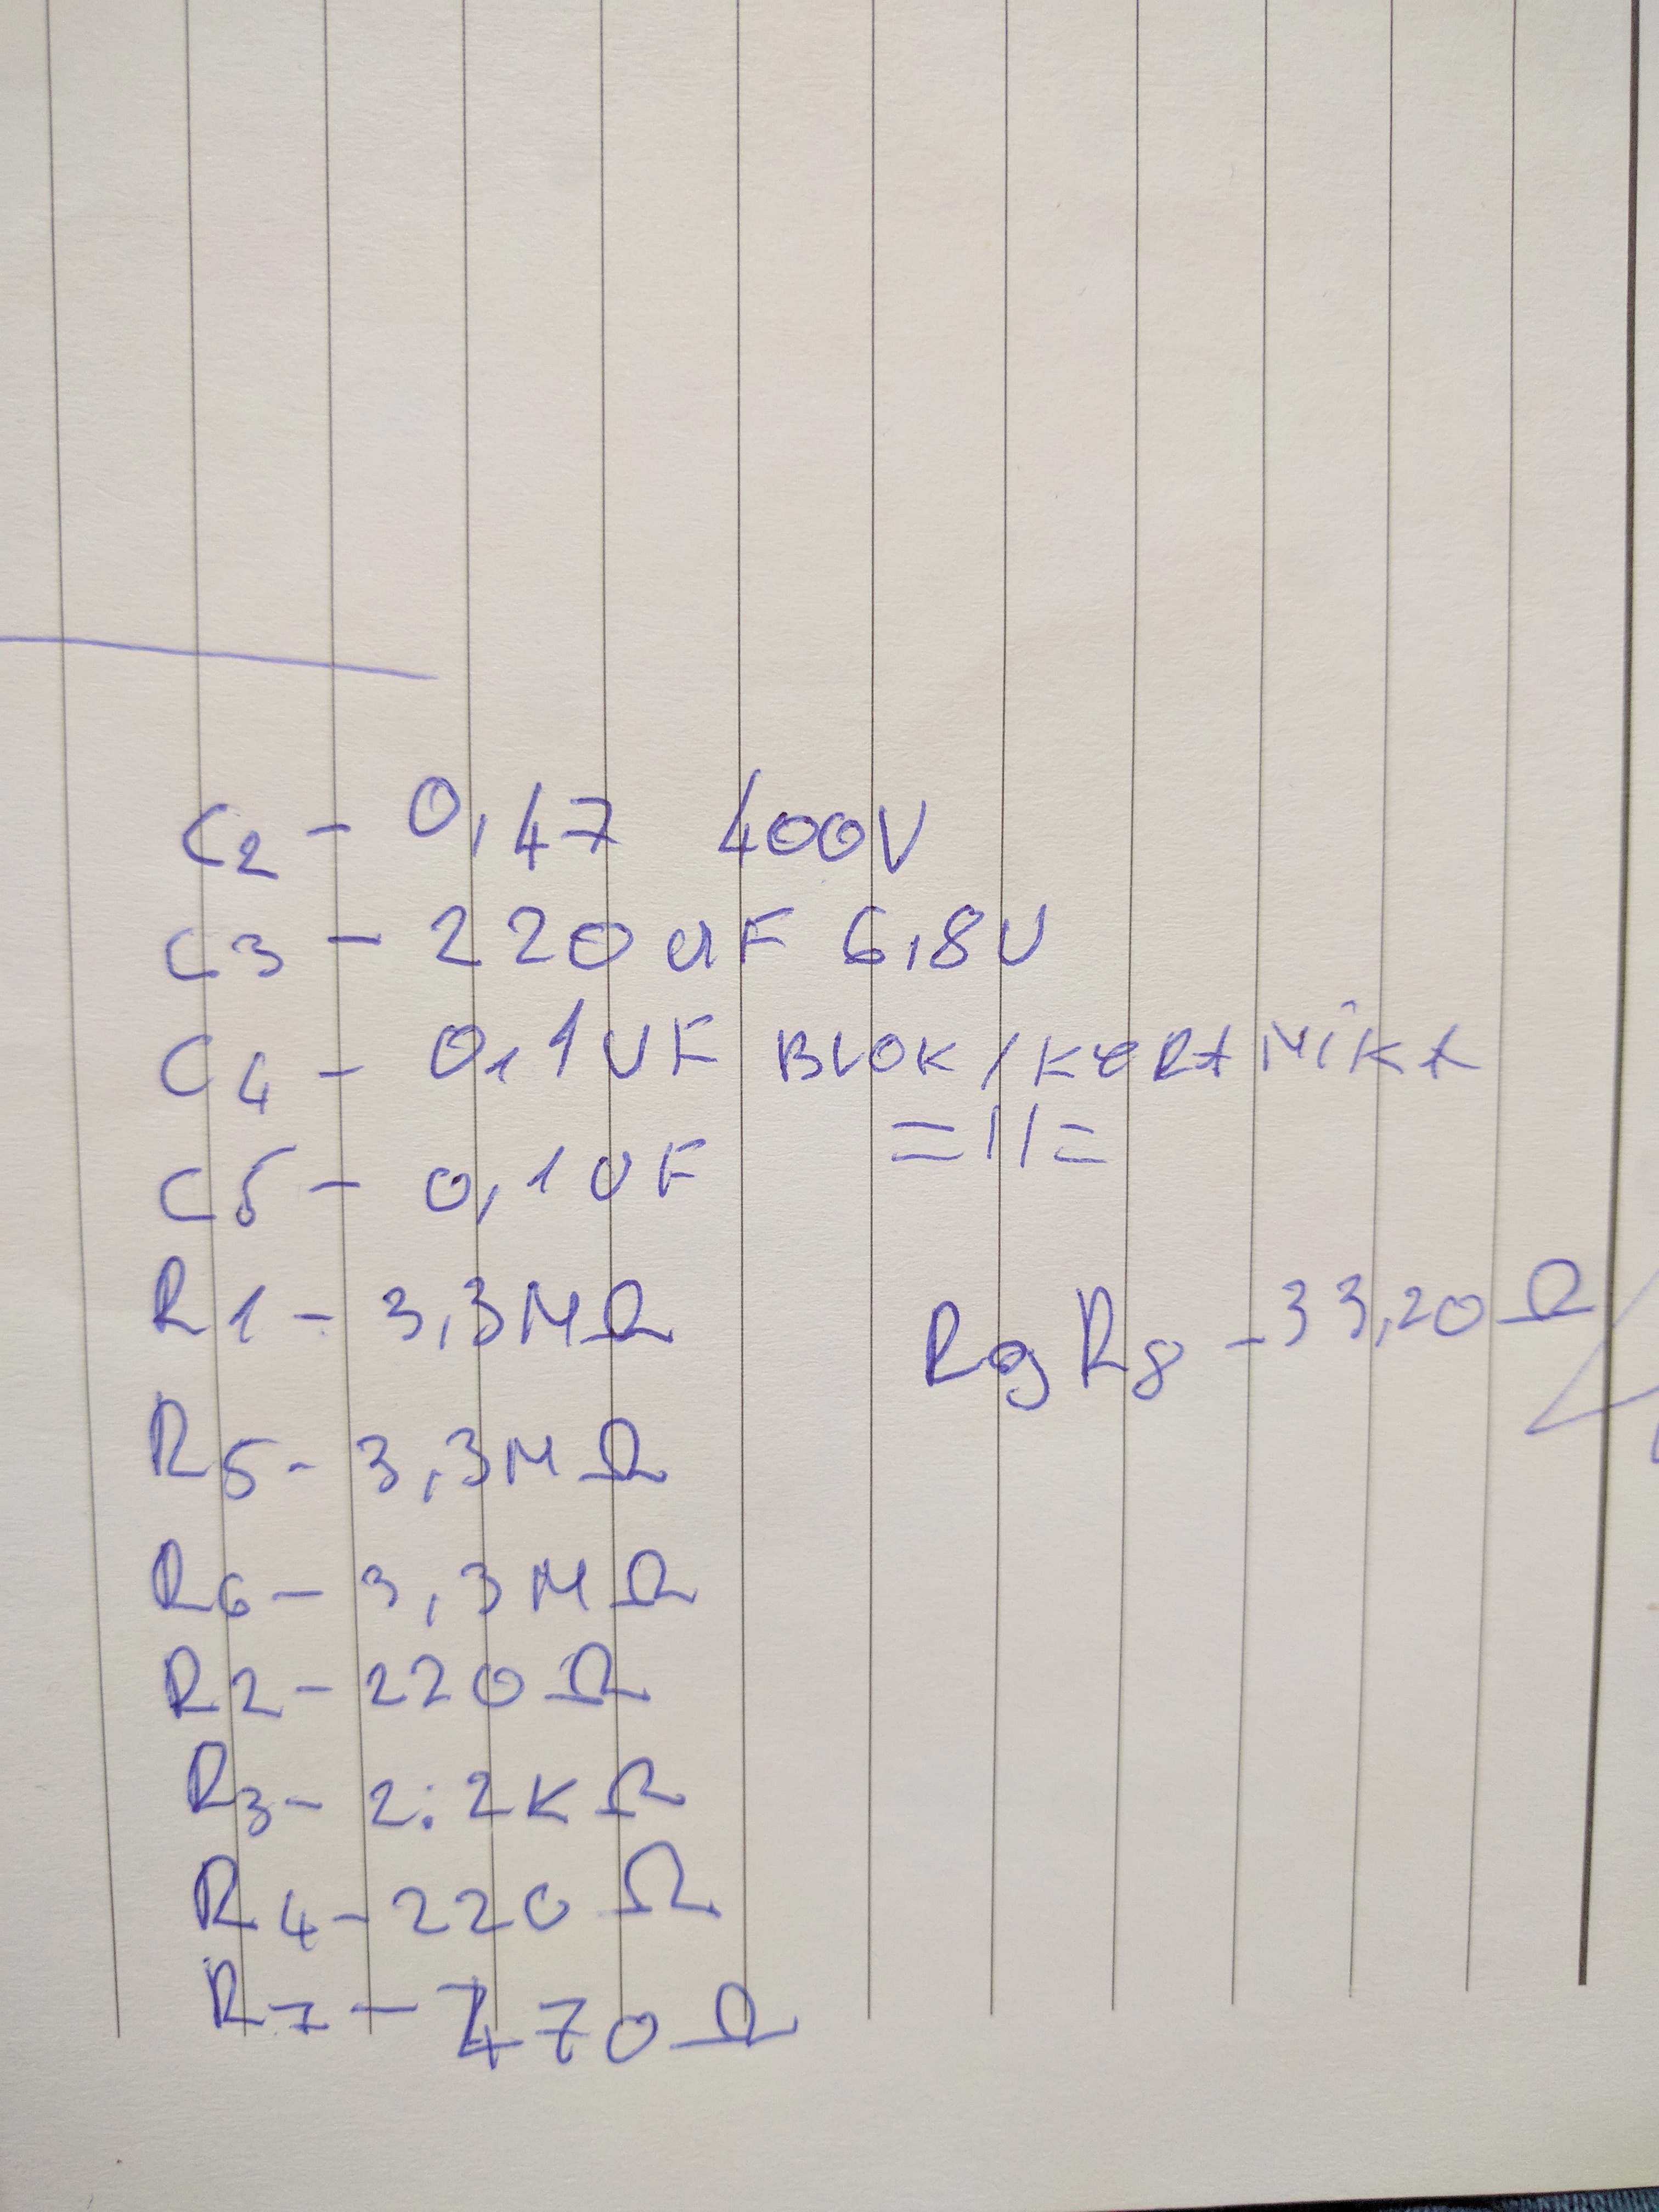 C2 - 0,47 400V
C3 - 220 uF 6,8V
C4 - 0,1 UF BLOK / KERAMİKA
C5 - 0,1 UF =//=
R1 - 3,3 MΩ
R9 R8 - 33,20 Ω
R5 - 3,3 M Ω
R6 - 3,3 M Ω
R2 - 220 Ω
R3 - 2:2K Ω
R4 - 220 Ω
R7 - 470 Ω